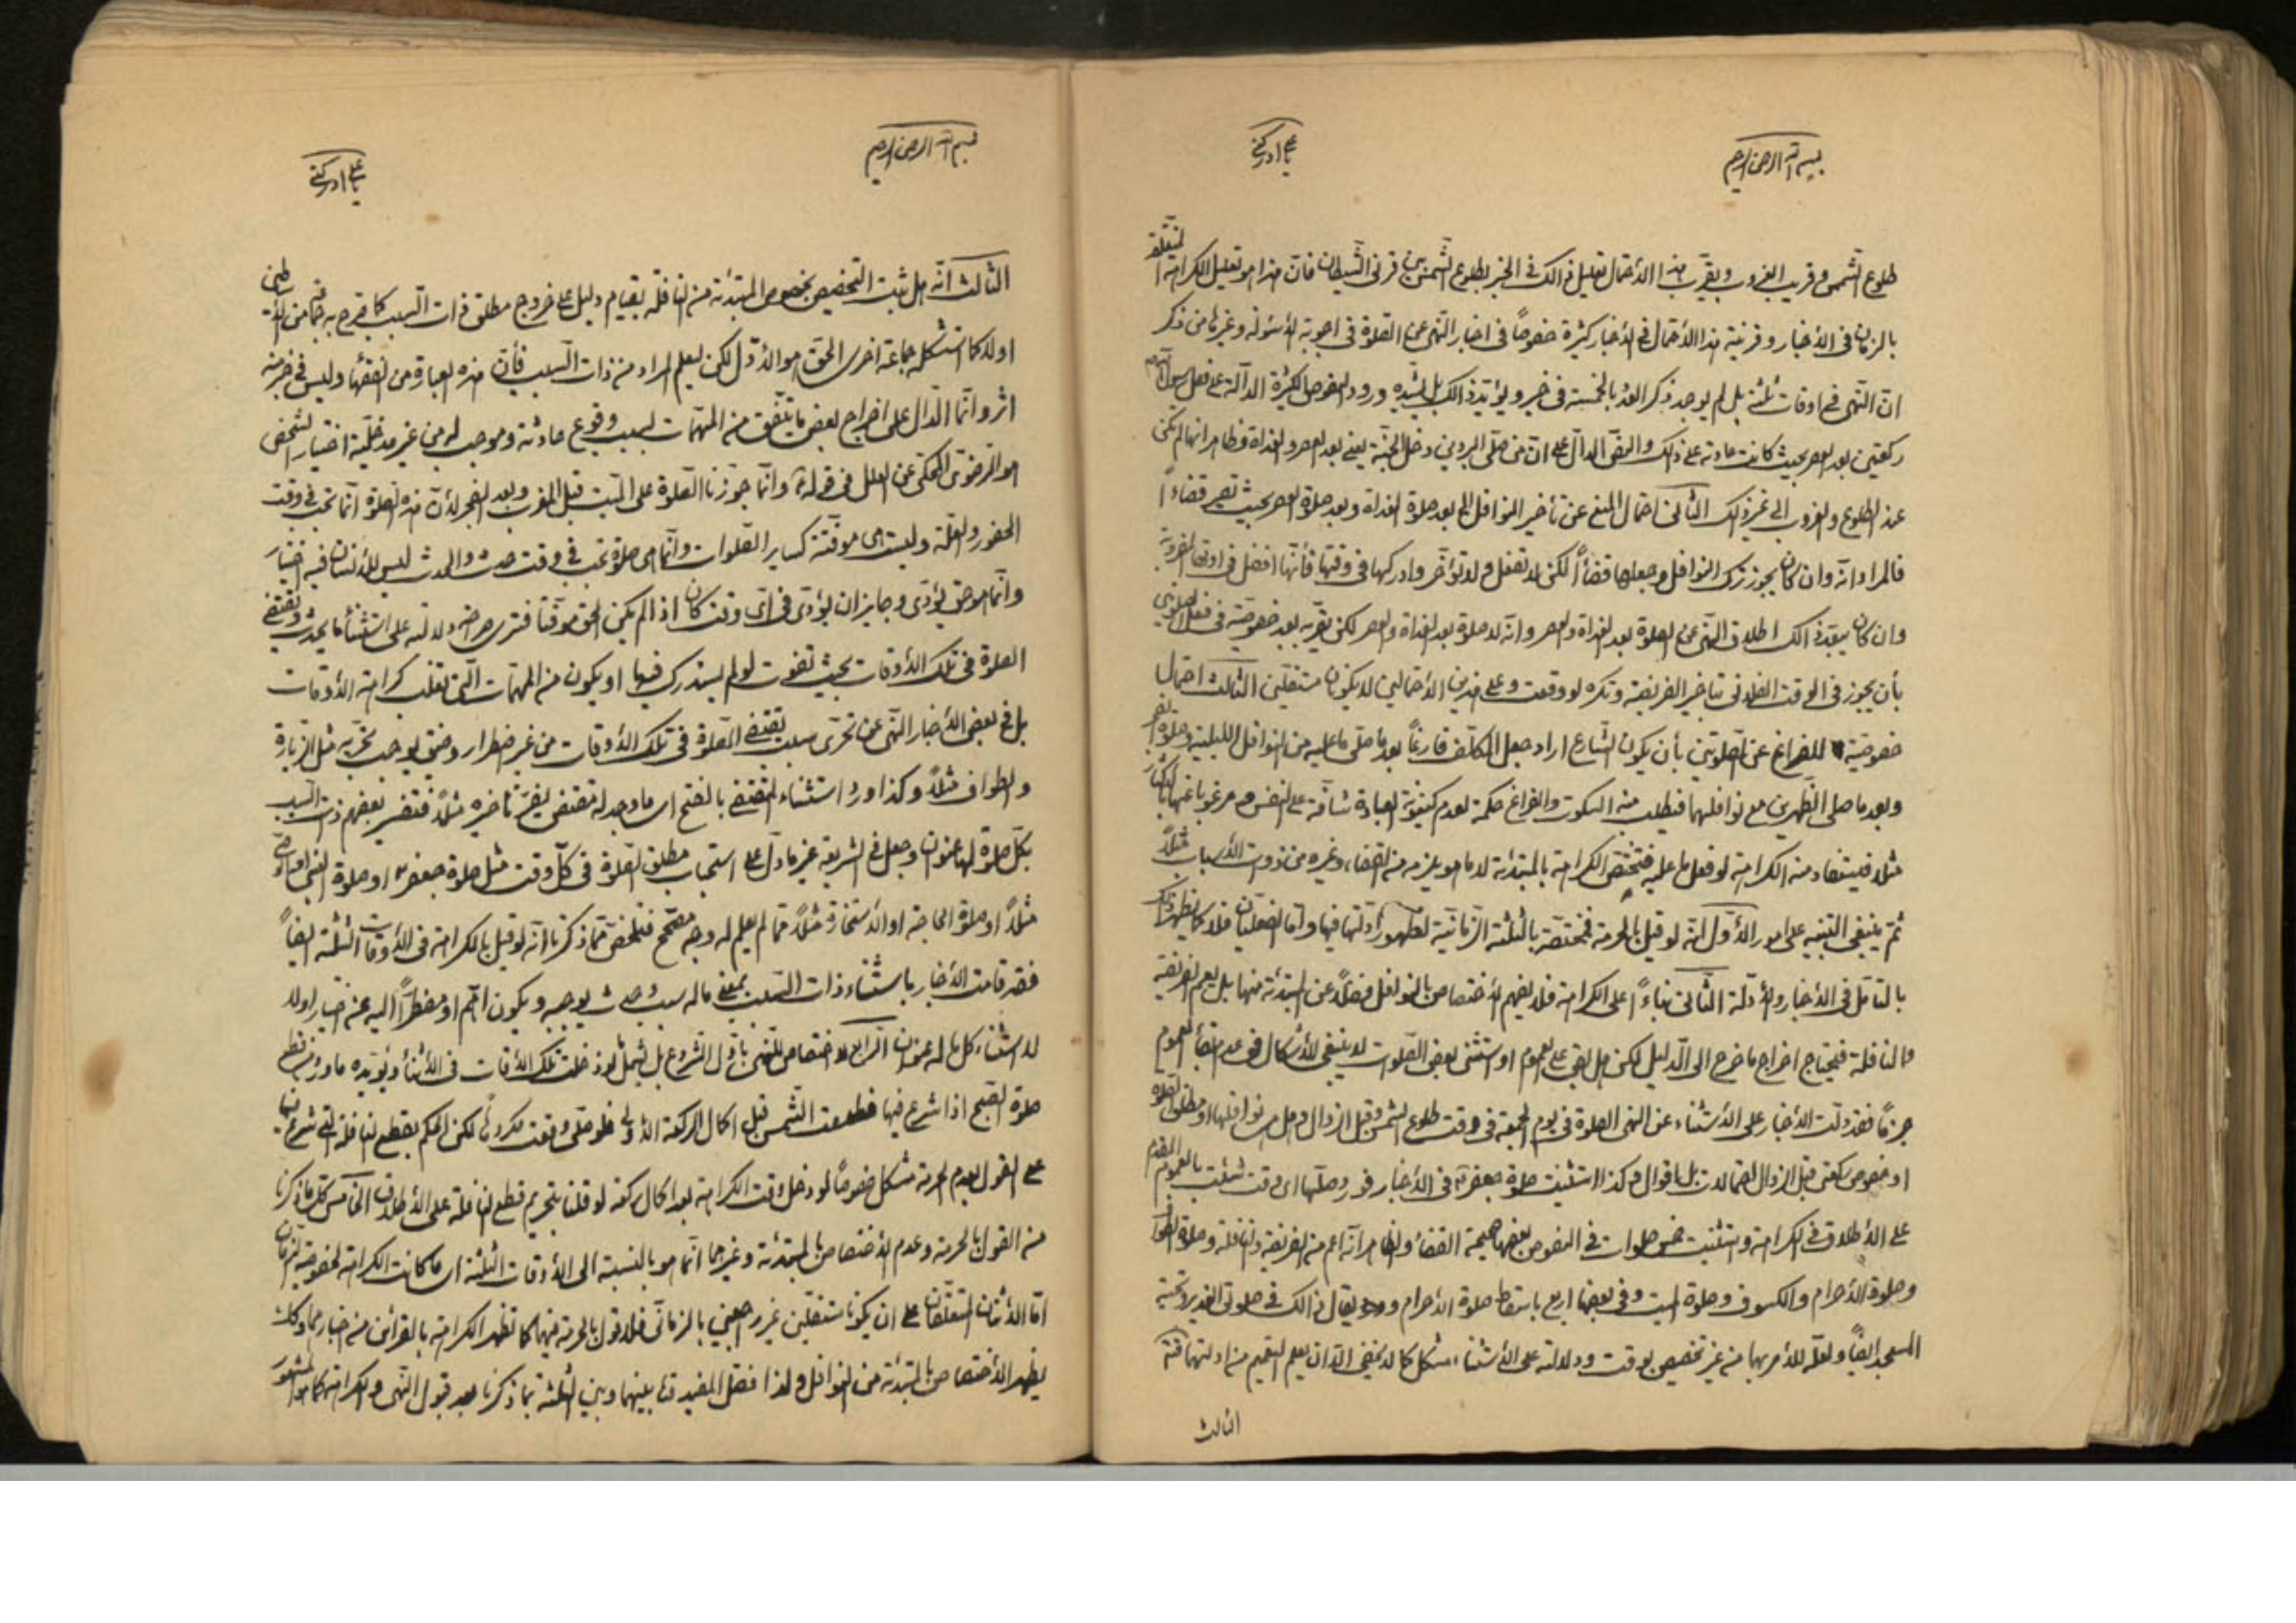 بسم الله الرحمن الرحيم
يا علي ادركني
طلوع الشمس وقريب الغروب ويقرب هذا الاحتمال تعليل ذالك في الخبر بطلوع الشمس بين قرني الشيطان فان هذا هو تعليل الكراهة المتعلقة
بالزمان في الاخبار وقرينة هذا الاحتمال في الاخبار كثيرة خصوصاً في اخبار النهى عن الصلوة في اجوبة الاسئولة وغيرها من ذكر
ان النهى في اوقات ثلثة بل لم يوجد ذكر العد بالخمسة في خبر ويؤيد ذالك بل يشيده ورود النصوص الكثيرة الدالة على فعل رسول الله
ركعتين بعد العصر بحيث كانت عادته على ذلك والنص الدال على ان من صلى البردين دخل الجنة يعنى بعد العصر والغداة وظاهر انها لم تكن
عند الطلوع والغروب الى غير ذلك الثانى احتمال المنع عن تأخير النوافل الى بعد صلوة الغداة وبعد صلوة العصر بحيث تصير قضاءاً
فالمراد انه وان كان يجوز ترك النوافل وجعلها قضاءاً لكن لا تفعل ولا تؤخر وادركها في وقتها فأنها افضل في اوقاتها المضروبة
وان كان يبعد ذالك اطلاق النهى عن الصلوة بعد الغداة والعصر وانه لا صلوة بعد الغداة والعصر لكن يقربه بعد خصوصية في فعل الصلوتين
بأن يجوز في الوقت الفلانى تاخير الفريضة وتكره لو وقعت وعلى هذين الاحتمالين لا يكونان مستقلين الثالث احتمال
خصوصية للفراغ عن الصلوتين بأن يكون الشارع اراد جعل المكلف فارغاً بعد ما صلى ما عليه من النوافل الليلية وصلوة الفجر
وبعد ما صلى الظهرين مع نوافلهما فيطلب منه السكوت والفراغ حكمة لعدم كينونة العبادة شاقة على النفس ومرغوباً عنها
مثلا فيستفاد منه الكراهة لو فعل ما عليه فتختص الكراهة بالمبتدئة لا ما هو يلزمه من القضاء وغيره من ذوات الاسباب مثلاً
ثم ينبغى التنبيه على امور الأول انه لو قيل بالحرمة فمختصة بالثلثة الزمانية لظهور ادلتها فيها واما الفعليان فلا كما يظهر ذلك
بالتامل في الاخبار والادلة الثانى بناءاً على الكراهة فلا يفهم الاختصاص بالنوافل فضلاً عن المبتدئة منها بل يعم الفريضة
والنافلة فيحتاج اخراج ما خرج الى الدليل لكن هل بقى على العموم او استثنى بعض الصلوات لا ينبغى الاشكال في عدم بقاء العموم
جزماً فقد دلت الاخبار على الاستثناء عن النهى الصلوة في يوم الجمعة في وقت طلوع الشمس وقبل الزوال وهل هى نوافلها او مطلق الصلوة
او خصوص ركعتى قبل الزوال احتمالات بل اقوال وكذا استثنيت صلوة جعفر في الاخبار فورد صلها اى وقت شئت بالعموم المقدم
على الاطلاق في الكراهة واستثنيت خمس صلوات في النصوص بعضها صحيحة القضاء والظاهر انه اعم من الفريضة والنافلة وصلوة الطواف
وصلوة الاحرام والكسوف وصلوة الميت وفى بعضها اربع باسقاط صلوة الاحرام وقد يقال ذالك في صلوتى الغدير وتحية
المسجد ايضاً ولعله للأمر بهما من غير تخصيص بوقت ودلالته على الاستثناء مشكل كما لا يخفى الا ان يعلم التعميم من ادلتهما فتـ
الثالث
بسم الله الرحمن الرحيم
يا علي ادركني
الثالث انه هل ثبت التخصيص بخصوص المبتدئة من النافلة بقيام دليل على خروج مطلق ذات السبب كما صرح به جماعة من الاساطين
اولا كما استشكله جماعة اخرى الحق هو الاول لكن ليعلم المراد من ذات السبب فأن هذه العبارة من الفقهاء وليس في خبر منه
اثر وانما الدال على اخراج بعض ما يتفق من المهمات لسبب وقوع حادثة وموجب له من غير مدخلية اختيار الشخص
هو الرضوى المحكى عن العلل في قوله وانما جوزنا الصلوة على الميت قبل المغرب وبعد الفجر لأن هذه الصلوة انما تجب في وقت
الحضور والعلة وليست هى موقتة كساير الصلوات وانما هى صلوة تجب في وقت حدث والحدث ليس للانسان فيه اختيار
وانما هو حق يؤدى وجايز ان يؤدى في اى وقت كان اذا لم يكن الحق موقتاً فترى صراحة دلالته على استثناء ما يحدث ويقتضى
الصلوة في تلك الاوقات بحيث تفوت لو لم يستدرك فيها او يكون من المهمات التى تغلب كراهة الاوقات
بل في بعض الاخبار النهى عن تحرى سبب يقتضى الصلوة في تلك الاوقات من غير اضطرار وضيق يوجب تحريه مثل الزيارة
والطواف مثلاً وكذا ورد استثناء المقتضى بالفتح اى ما وجد له مقتضى يضر تاخيره مثلاً فتفسير بعضهم ذات السبب
بكل صلوة لها عنوان وجعل في الشريعة غير ما دل على استحباب مطلق الصلوة في كل وقت مثل صلوة جعفر او صلوة
مثلاً او صلوة الحاجة او الاستخارة مثلاً مما لم يعلم له وجه مصحح فتلخص مما ذكرنا انه لو قيل بالكراهة في الاوقات الثلثة ايضاً
فقد قامت الاخبار باستثناء ذات السبب بمعنى ما له سبب وحدث يوجبه ويكون اهم او مضطراً اليه عن اختيار اولا
لا استثناء كل ما له عنوان الرابع لا اختصاص للنهى باول الشروع بل يشمل ما لو دخلت تلك الاوقات في الاثناء ويؤيده ما ورد من قطع
صلوة الصبح اذا شرع فيها فطلعت الشمس قبل اكمال الركعة الاولى فلو صلى وقعت مكروهاً لكن الحكم بقطع النافلة التى شرع فيها
على القول بعدم الحرمة مشكل خصوصاً لو دخل وقت الكراهة بعد اكمال ركعة لو قلنا بتحريم قطع النافلة على الاطلاق الخامس كل ما ذكرنا
من القول بالحرمة وعدم الاختصاص بالمبتدئة وغيرهما انما هو بالنسبة الى الاوقات الثلثة اى ما كانت الكراهة لخصوصية الزمان
اما الاثنان المتعلقان على ان يكونا مستقلين غير راجعين بالزمانى فلا قول بالحرمة فيهما كما تظهر الكراهة بالقرائن من اخبارهما وكذلك
يظهر الاختصاص بالمبتدئة من النوافل ولذا فصل المفيد بينهما وبين الثلثة بما ذكرنا بعد قبول النهى والكراهة كما هو المشهور